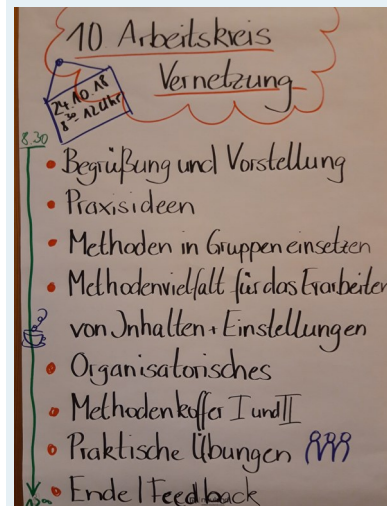 10 Arbeitskreis
Vernetzung
24.10.18
8³⁰-12Uhr
8.30
• Begrüßung und Vorstellung
• Praxisideen
• Methoden in Gruppen einsetzen
• Methodenvielfalt für das Erarbeiten
von Inhalten + Einstellungen
• Organisatorisches
• Methodenkoffer I und II
• Praktische Übungen
• Ende | Feedback
12⁰⁰